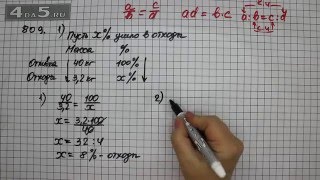 4DA5.RU
a/b = c/d ad = b·c a:b=c:d
809. 1) Пусть x% ушло в отходы
Масса %
Отливка ↓ 40 кг 100% ↓
Отходы 3,2 кг x%
1) 40/3,2 = 100/x 2)
x = 3,2·100/40
x = 32 : 4
x = 8% - отходы